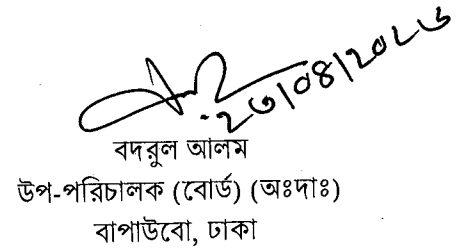 ২৩/০৪/২০২৬
বদরুল আলম
উপ-পরিচালক (বোর্ড) (অঃদাঃ)
বাপাউবো, ঢাকা